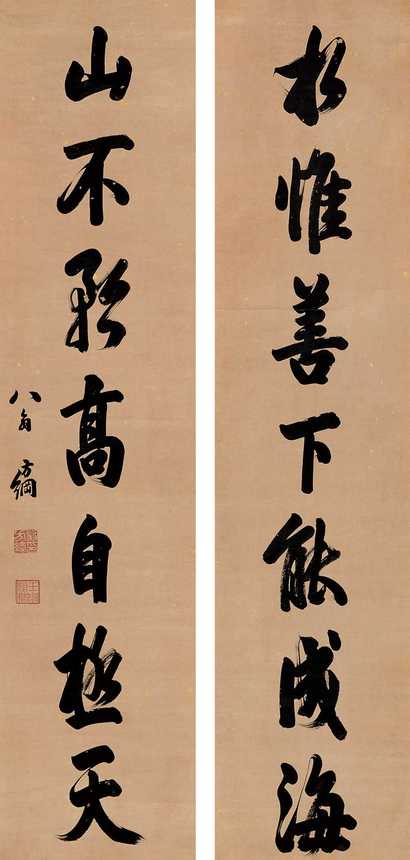 水惟善下能成海
山不矜高自極天
八翁方綱